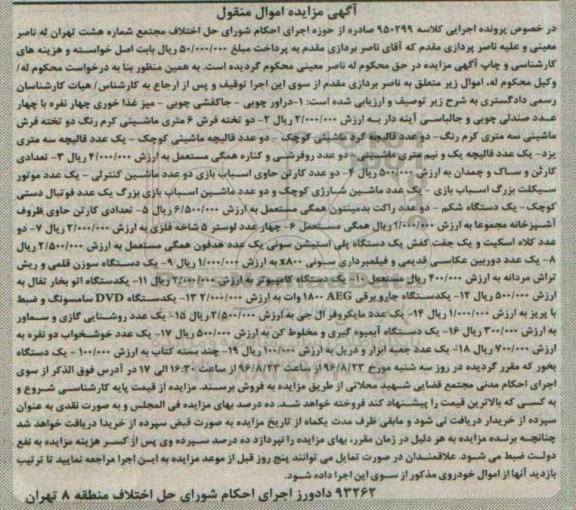 آگهی مزایده اموال منقول
در خصوص پرونده اجرایی کلاسه ۹۵۰۲۹۹ صادره از حوزه اجرای احکام شورای حل اختلاف مجتمع شماره هشت تهران له ناصر
معینی و علیه ناصر پردازی مقدم که آقای ناصر بردازی مقدم به پرداخت مبلغ ۵۰/۰۰۰/۰۰۰ ریال بابت اصل خواسته و هزینه های
کارشناسی و چاپ آگهی مزایده در حق محکوم له ناصر معینی محکوم گردیده است. به همین منظور بنا به درخواست محکوم له/
وکیل محکوم له، اموال زیر متعلق به ناصر بردازی مقدم از سوی این اجرا توقیف و پس از ارجاع به کارشناس/ هیات کارشناسان
رسمی دادگستری به شرح زیر توصیف و ارزیابی شده است: ۱-دراور چوبی - جاکفشی چوبی - میز غذا خوری چهار نفره با چهار
عدد صندلی چوبی و جالباسی آینه دار به ارزش ۲/۰۰۰/۰۰۰ ریال ۲- دو تخته فرش ۶ متری ماشینی کرم رنگ دو تخته فرش
ماشینی سه متری کرم رنگ - دو عدد قالیچه گرد ماشینی کوچک - دو عدد قالیچه ماشینی کوچک - یک عدد قالیچه سه متری
یزد- یک عدد قالیچه یک و نیم متری ماشینی - دو عدد روفرشی و کناره همگی مستعمل به ارزش ۴/۰۰۰/۰۰۰ ریال ۳- تعدادی
کارتن و ساک و چمدان به ارزش ۵۰۰/۰۰۰ ریال ۴- دو عدد کارتن حاوی اسباب بازی دو عدد ماشین کنترلی - یک عدد موتور
سیکلت بزرگ اسباب بازی - یک عدد ماشین شارژی کوچک و دو عدد ماشین اسباب بازی بزرگ یک عدد فوتبال دستی
کوچک- یک دستگاه شکم - دو عدد راکت بدمینتون همگی مستعمل به ارزش ۶/۵۰۰/۰۰۰ ریال ۵- تعدادی کارتن حاوی ظروف
آشپزخانه مجموعا به ارزش ۱/۰۰۰/۰۰۰ ریال همگی مستعمل ۶- چهار عدد لوستر ۵ شاخه فلزی به ارزش ۲/۰۰۰/۰۰۰ ریال ۷- دو
عدد کلاه اسکیت و یک جفت کفش یک دستگاه پلی استیشن سونی یک عدد هدفون همگی مستعمل به ارزش ۲/۵۰۰/۰۰۰ ریال
۸- یک عدد دوربین عکاسی قدیمی و فیلمبرداری سونی x۸۰۰ به ارزش ۱/۰۰۰/۰۰۰ ریال ۹- یک دستگاه سوزن قلمی و ریش
تراش مردانه به ارزش ۴۰۰/۰۰۰ ریال مستعمل ۱۰- یک دستگاه کامپیوتر به ارزش ۲/۰۰۰/۰۰۰ ریال ۱۱- یکدستگاه اتو بخار تفال به
ارزش ۵۰۰/۰۰۰ ریال ۱۲- یکدستگاه جاروبرقی AEG ۱۸۰۰ وات به ارزش ۲/۰۰۰/۰۰۰ ۱۳- یکدستگاه DVD سامسونگ و ضبط
با پریز به ارزش ۱/۰۰۰/۰۰۰ ریال ۱۴- یک عدد مایکروفر ال جی به ارزش ۲/۵۰۰/۰۰۰ ریال ۱۵- یک عدد روشنایی گازی و سماور
به ارزش ۳۰۰/۰۰۰ ریال ۱۶- یک دستگاه آبمیوه گیری و مخلوط کن به ارزش ۵۰۰/۰۰۰ ریال ۱۷- یک عدد خوشخواب دو نفره به
ارزش ۷۰۰/۰۰۰ ریال ۱۸- یک عدد جعبه ابزار و دریل به ارزش ۱۰۰/۰۰۰ ریال ۱۹- چند بسته کتاب به ارزش ۱۰۰/۰۰۰ - یک دستگاه
بخور که مقرر گردیده در روز سه شنبه مورخ ۹۶/۸/۲۳ از ساعت ۹۶/۸/۲۳ از ساعت ۱۶:۳۰ الی ۱۷ در آدرس فوق الذکر از سوی
اجرای احکام مدنی مجتمع قضایی شهید محلاتی از طریق مزایده به فروش برسند. مزایده از قیمت پایه کارشناسی شروع و
به کسی که بالاترین قیمت را پیشنهاد کند فروخته خواهد شد. ده درصد بهای مزایده فی المجلس و به صورت نقدی به عنوان
سپرده از خریدار دریافت نی شود و مابقی ظرف مدت یکماه از تاریخ مزایده به صورت قبض سپرده از خریدا دریافت خواهد شد
چنانچه برنده مزایده به هر دلیل در زمان مقرر، بهای مزایده را نپردازد ده درصد سپرده وی پس از کسر هزینه مزایده به نفع
دولت ضبط می شود. علاقمندان در صورت تمایل می توانند پنج روز قبل از موعد مزایده به این اجرا مراجعه نمایید تا ترتیب
بازدید آنها از اموال خودروی مذکور از سوی این اجرا داده شود.
۹۳۲۶۲ دادورز اجرای احکام شورای حل اختلاف منطقه ۸ تهران